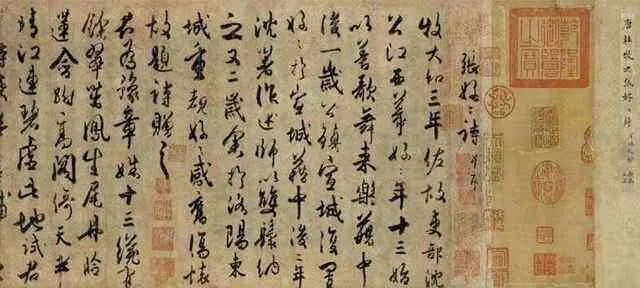 唐杜牧之張好好
張好〻詩并序
牧大和三年佐故吏部沈
公江西幕好〻年十三始
以善歌舞来樂籍中
後一歲公鎮宣城復置
好〻於宣城籍中後二年
沈著作述師以雙鬟納
之又二歲余於洛陽東
城重覩好〻感舊傷懷
故題詩贈之
君為豫章姝十三纔有
餘翠茁鳳生尾丹臉
蓮含跗高閣倚天半
晴江連碧虛此地試君